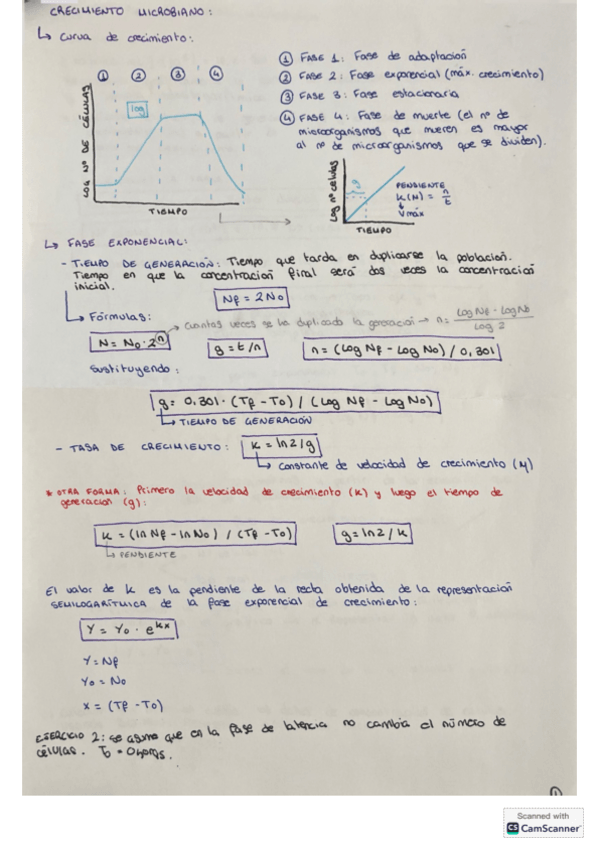 CRECIMIENTO MICROBIANO:
↳ Curva de crecimiento:
① FASE 1: Fase de adaptación
② FASE 2: Fase exponencial (máx. crecimiento)
③ FASE 3: Fase estacionaria
④ FASE 4: Fase de muerte (el nº de
microorganismos que mueren es mayor
al nº de microorganismos que se dividen).
① ② ③ ④
log
LOG Nº DE CÉLULAS
TIEMPO
LOG nº células
g
PENDIENTE
K(M) = n/t
Vmáx
TIEMPO
↳ FASE EXPONENCIAL:
- TIEMPO DE GENERACIÓN: Tiempo que tarda en duplicarse la población.
Tiempo en que la concentración final será dos veces la concentración
inicial.
Nf = 2No
↳ Fórmulas:
→ cuantas veces se ha duplicado la generación → n = (Log Nf - Log No) / Log 2
N = No·2ⁿ
g = t/n
n = (Log Nf - Log No) / 0,301
Sustituyendo:
g = 0,301·(Tf - To) / (Log Nf - Log No)
↳ TIEMPO DE GENERACIÓN
- TASA DE CRECIMIENTO: K = ln2/g
↳ Constante de velocidad de crecimiento (M)
* OTRA FORMA: Primero la velocidad de crecimiento (K) y luego el tiempo de
generación (g):
K = (ln Nf - ln No) / (Tf - To)
g = ln2/K
↳ PENDIENTE
El valor de K es la pendiente de la recta obtenida de la representación
SEMILOGARÍTMICA de la fase exponencial de crecimiento:
Y = Yo · e^kx
Y = Nf
Yo = No
x = (Tf - To)
EJERCICIO 2: se asume que en la fase de latencia no cambia el número de
células. To =
1
Scanned with
CS CamScanner